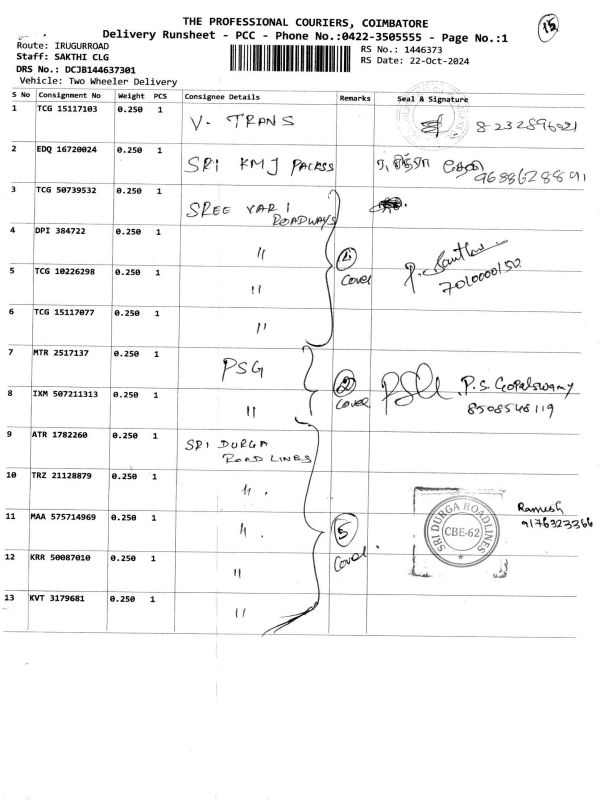 THE PROFESSIONAL COURIERS, COIMBATORE
Delivery Runsheet - PCC - Phone No.:0422-3505555 - Page No.:1
Route: IRUGURROAD
Staff: SAKTHI CLG
DRS No.: DCJB144637301
Vehicle: Two Wheeler Delivery
RS No.: 1446373
RS Date: 22-Oct-2024
S No Consignment No Weight PCS Consignee Details Remarks Seal & Signature
1 TCG 15117103 0.250 1 V- TRANS
2 EDQ 16720024 0.250 1 SRI KMJ
3 TCG 50739532 0.250 1 SREE VARI
ROADWAYS
4 DPI 384722 0.250 1 "
Cover
7010000150
5 TCG 10226298 0.250 1 "
6 TCG 15117077 0.250 1 "
7 MTR 2517137 0.250 1 PSG
2
Cover
P.S. Gopalswamy
8508548119
8 IXM 507211313 0.250 1 "
9 ATR 1782260 0.250 1 SRI DURGA
ROAD LINES
10 TRZ 21128879 0.250 1 "
11 MAA 575714969 0.250 1 "
5
Cover
SRI DURGA ROADLINES
CBE-62
Ramesh
9176323366
12 KRR 50087010 0.250 1 "
13 KVT 3179681 0.250 1 "